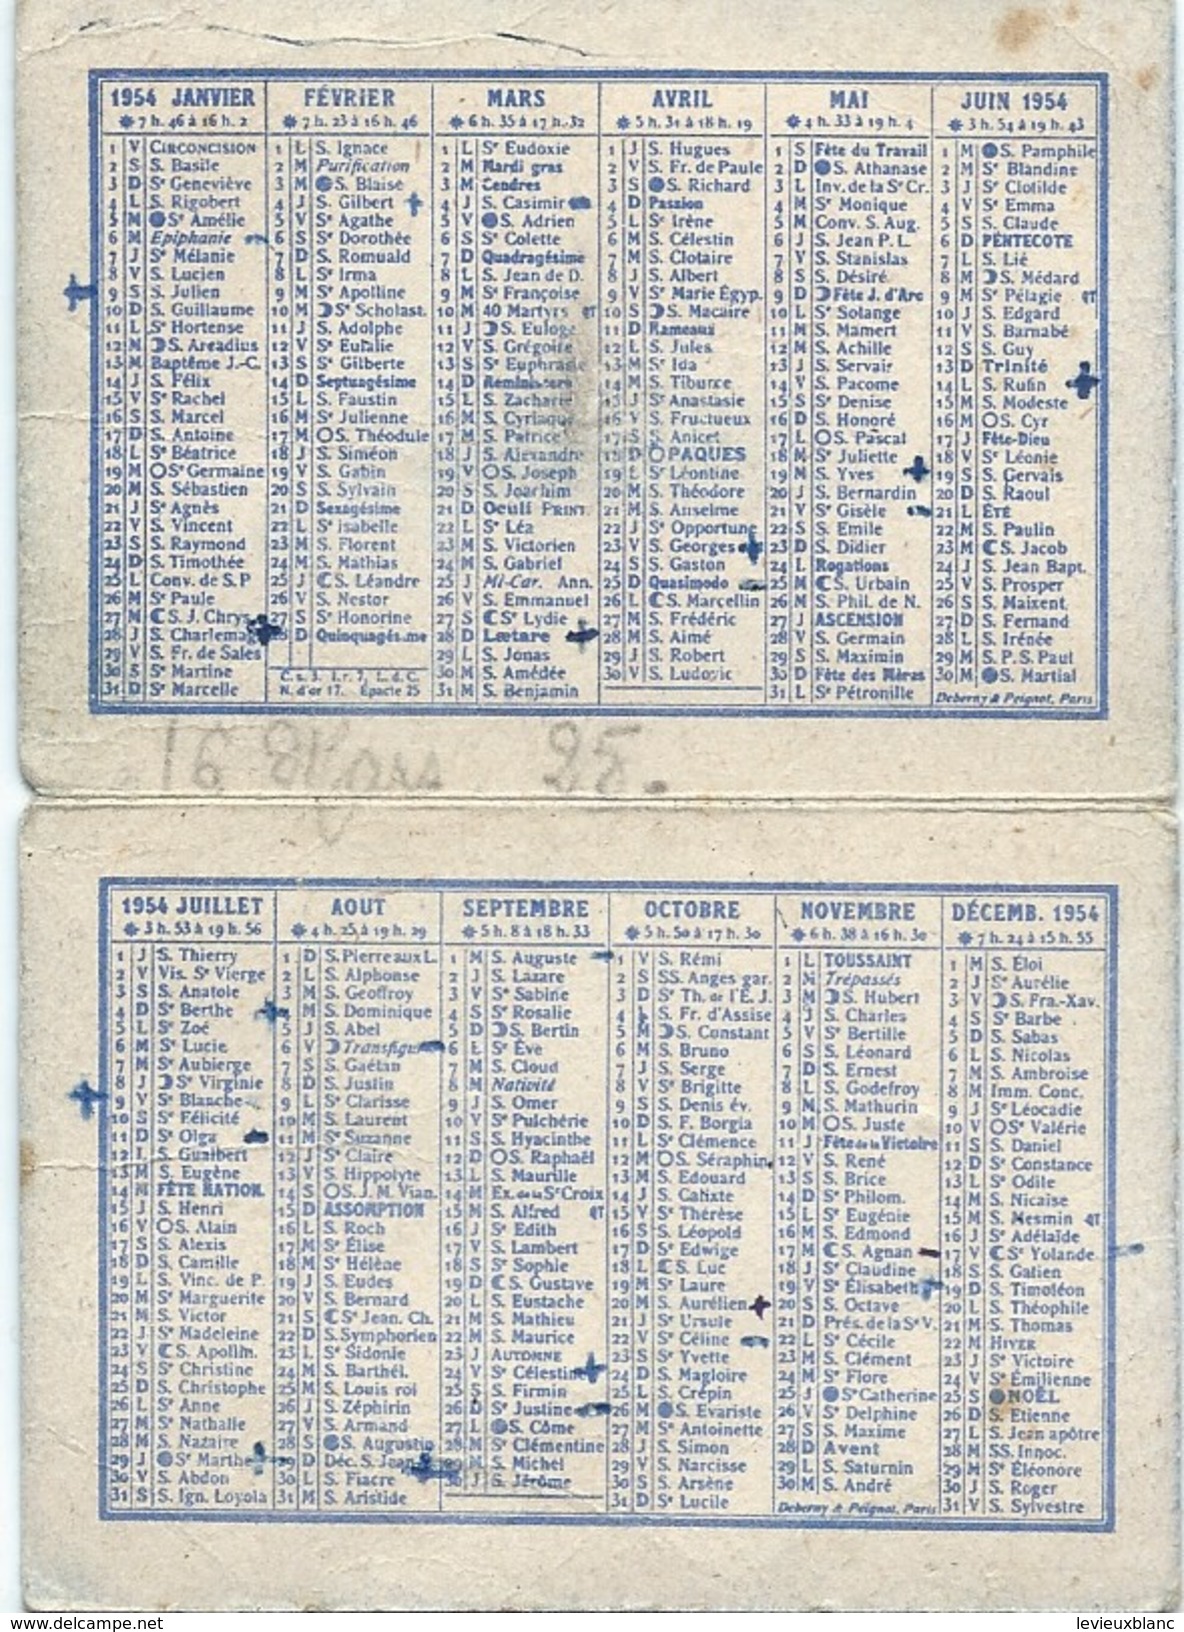 1954 JANVIER
☀ 7 h. 46 à 16 h. 2
1 V CIRCONCISION
2 S S. Basile
3 D Sᵉ Geneviève
4 L S. Rigobert
5 M ●Sᵉ Amélie
6 M Epiphanie
7 J Sᵉ Mélanie
8 V S. Lucien
9 S S. Julien
10 D S. Guillaume
11 L Sᵉ Hortense
12 M ☽S. Arcadius
13 M Baptême J.-C.
14 J S. Félix
15 V Sᵉ Rachel
16 S S. Marcel
17 D S. Antoine
18 L Sᵉ Béatrice
19 M ○Sᵉ Germaine
20 M S. Sébastien
21 J Sᵉ Agnès
22 V S. Vincent
23 S S. Raymond
24 D S. Timothée
25 L Conv. de S. P
26 M Sᵉ Paule
27 M ☾S. J. Chrys.
28 J S. Charlemag
29 V S. Fr. de Sales
30 S Sᵉ Martine
31 D Sᵉ Marcelle
FÉVRIER
☀ 7 h. 23 à 16 h. 46
1 L S. Ignace
2 M Purification
3 M ●S. Blaise
4 J S. Gilbert
5 V Sᵉ Agathe
6 S Sᵉ Dorothée
7 D S. Romuald
8 L Sᵉ Irma
9 M Sᵉ Apolline
10 M ☽Sᵉ Scholast.
11 J S. Adolphe
12 V Sᵉ Eulalie
13 S Sᵉ Gilberte
14 D Septuagésime
15 L S. Faustin
16 M Sᵉ Julienne
17 M ○S. Théodule
18 J S. Siméon
19 V S. Gabin
20 S S. Sylvain
21 D Sexagésime
22 L Sᵉ Isabelle
23 M S. Florent
24 M S. Mathias
25 J ☾S. Léandre
26 V S. Nestor
27 S Sᵉ Honorine
28 D Quinquagés.me
C. s. 3. I. r. 7, L. d. C.
N. d'or 17. Epacte 25
MARS
☀ 6 h. 35 à 17 h. 32
1 L Sᵉ Eudoxie
2 M Mardi gras
3 M Cendres
4 J S. Casimir
5 V ●S. Adrien
6 S Sᵉ Colette
7 D Quadragésime
8 L S. Jean de D.
9 M Sᵉ Françoise
10 M 40 Martyrs QT
11 J ☽S. Euloge
12 V S. Grégoire
13 S Sᵉ Euphrasie
14 D Reminiscere
15 L S. Zacharie
16 M S. Cyriaque
17 M S. Patrice
18 J S. Alexandre
19 V ○S. Joseph
20 S S. Joachim
21 D Oculi PRINT.
22 L Sᵉ Léa
23 M S. Victorien
24 M S. Gabriel
25 J Mi-Car. Ann.
26 V S. Emmanuel
27 S ☾Sᵉ Lydie
28 D Lætare
29 L S. Jonas
30 M S. Amédée
31 M S. Benjamin
AVRIL
☀ 5 h. 31 à 18 h. 19
1 J S. Hugues
2 V S. Fr. de Paule
3 S ●S. Richard
4 D Passion
5 L Sᵉ Irène
6 M S. Célestin
7 M S. Clotaire
8 J S. Albert
9 V Sᵉ Marie Égyp.
10 S ☽S. Macaire
11 D Rameaux
12 L S. Jules
13 M Sᵉ Ida
14 M S. Tiburce
15 J Sᵉ Anastasie
16 V S. Fructueux
17 S S. Anicet
18 D ○PAQUES
19 L Sᵉ Léontine
20 M S. Théodore
21 M S. Anselme
22 J Sᵉ Opportune
23 V S. Georges
24 S S. Gaston
25 D Quasimodo
26 L ☾S. Marcellin
27 M S. Frédéric
28 M S. Aimé
29 J S. Robert
30 V S. Ludovic
MAI
☀ 4 h. 33 à 19 h. 4
1 S Fête du Travail
2 D ●S. Athanase
3 L Inv. de la Sᵉ Cr.
4 M Sᵉ Monique
5 M Conv. S. Aug.
6 J S. Jean P. L.
7 V S. Stanislas
8 S S. Désiré
9 D ☽Fête J. d'Arc
10 L Sᵉ Solange
11 M S. Mamert
12 M S. Achille
13 J S. Servais
14 V S. Pacome
15 S Sᵉ Denise
16 D S. Honoré
17 L ○S. Pascal
18 M Sᵉ Juliette
19 M S. Yves
20 J S. Bernardin
21 V Sᵉ Gisèle
22 S S. Emile
23 D S. Didier
24 L Rogations
25 M ☾S. Urbain
26 M S. Phil. de N.
27 J ASCENSION
28 V S. Germain
29 S S. Maximin
30 D Fête des Mères
31 L Sᵉ Pétronille
JUIN 1954
☀ 3 h. 54 à 19 h. 43
1 M ●S. Pamphile
2 M Sᵉ Blandine
3 J Sᵉ Clotilde
4 V Sᵉ Emma
5 S S. Claude
6 D PENTECOTE
7 L S. Lié
8 M ☽S. Médard
9 M Sᵉ Pélagie QT
10 J S. Edgard
11 V S. Barnabé
12 S S. Guy
13 D Trinité
14 L S. Rufin
15 M S. Modeste
16 M ○S. Cyr
17 J Fête-Dieu
18 V Sᵉ Léonie
19 S S. Gervais
20 D S. Raoul
21 L ÉTÉ
22 M S. Paulin
23 M ☾S. Jacob
24 J S. Jean Bapt.
25 V S. Prosper
26 S S. Maixent
27 D S. Fernand
28 L S. Irénée
29 M S. P. S. Paul
30 M ●S. Martial
Deberny & Peignot, Paris
1954 JUILLET
☀ 3 h. 53 à 19 h. 56
1 J S. Thierry
2 V Vis. Sᵉ Vierge
3 S S. Anatole
4 D Sᵉ Berthe
5 L Sᵉ Zoé
6 M Sᵉ Lucie
7 M Sᵉ Aubierge
8 J ☽Sᵉ Virginie
9 V Sᵉ Blanche
10 S Sᵉ Félicité
11 D Sᵉ Olga
12 L S. Gualbert
13 M S. Eugène
14 M FÊTE NATION.
15 J S. Henri
16 V ○S. Alain
17 S S. Alexis
18 D S. Camille
19 L S. Vinc. de P.
20 M Sᵉ Marguerite
21 M S. Victor
22 J Sᵉ Madeleine
23 V ☾S. Apollin.
24 S Sᵉ Christine
25 D S. Christophe
26 L Sᵉ Anne
27 M Sᵉ Nathalie
28 M S. Nazaire
29 J ●Sᵉ Marthe
30 V S. Abdon
31 S S. Ign. Loyola
AOUT
☀ 4 h. 25 à 19 h. 29
1 D S. Pierre aux L.
2 L S. Alphonse
3 M S. Geoffroy
4 M S. Dominique
5 J S. Abel
6 V ☽Transfigur
7 S S. Gaëtan
8 D S. Justin
9 L Sᵉ Clarisse
10 M S. Laurent
11 M Sᵉ Suzanne
12 J Sᵉ Claire
13 V S. Hippolyte
14 S ○S. J. M. Vian.
15 D ASSOMPTION
16 L S. Roch
17 M Sᵉ Élise
18 M Sᵉ Hélène
19 J S. Eudes
20 V S. Bernard
21 S ☾Sᵉ Jean. Ch.
22 D S. Symphorien
23 L Sᵉ Sidonie
24 M S. Barthél.
25 M S. Louis roi
26 J S. Zéphirin
27 V S. Armand
28 S ●S. Augustin
29 D Déc. S. Jean
30 L S. Fiacre
31 M S. Aristide
SEPTEMBRE
☀ 5 h. 8 à 18 h. 33
1 M S. Auguste
2 J S. Lazare
3 V Sᵉ Sabine
4 S Sᵉ Rosalie
5 D ☽S. Bertin
6 L Sᵉ Ève
7 M S. Cloud
8 M Nativité
9 J S. Omer
10 V Sᵉ Pulchérie
11 S S. Hyacinthe
12 D ○S. Raphaël
13 L S. Maurille
14 M Ex. de la Sᵉ Croix
15 M S. Alfred QT
16 J Sᵉ Edith
17 V S. Lambert
18 S Sᵉ Sophie
19 D ☾S. Gustave
20 L S. Eustache
21 M S. Mathieu
22 M S. Maurice
23 J AUTOMNE
24 V Sᵉ Célestine
25 S S. Firmin
26 D Sᵉ Justine
27 L ●S. Côme
28 M Sᵉ Clémentine
29 M S. Michel
30 J S. Jérôme
OCTOBRE
☀ 5 h. 50 à 17 h. 30
1 V S. Rémi
2 S SS. Anges gar.
3 D Sᵉ Th. de l'E. J.
4 L S. Fr. d'Assise
5 M ☽S. Constant
6 M S. Bruno
7 J S. Serge
8 V Sᵉ Brigitte
9 S S. Denis év.
10 D S. F. Borgia
11 L Sᵉ Clémence
12 M ○S. Séraphin
13 M S. Edouard
14 J S. Calixte
15 V Sᵉ Thérèse
16 S S. Léopold
17 D Sᵉ Edwige
18 L ☾S. Luc
19 M Sᵉ Laure
20 M S. Aurélien
21 J Sᵉ Ursule
22 V Sᵉ Céline
23 S Sᵉ Yvette
24 D S. Magloire
25 L S. Crépin
26 M ●S. Evariste
27 M Sᵉ Antoinette
28 J S. Simon
29 V S. Narcisse
30 S S. Arsène
31 D Sᵉ Lucile
NOVEMBRE
☀ 6 h. 38 à 16 h. 30
1 L TOUSSAINT
2 M Trépassés
3 M ☽S. Hubert
4 J S. Charles
5 V Sᵉ Bertille
6 S S. Léonard
7 D S. Ernest
8 L S. Godefroy
9 M S. Mathurin
10 M ○S. Juste
11 J Fête de la Victoire
12 V S. René
13 S S. Brice
14 D Sᵉ Philom.
15 L Sᵉ Eugénie
16 M S. Edmond
17 M ☾S. Agnan
18 J Sᵉ Claudine
19 V Sᵉ Élisabeth
20 S S. Octave
21 D Prés. de la Sᵉ V.
22 L Sᵉ Cécile
23 M S. Clément
24 M Sᵉ Flore
25 J ●Sᵉ Catherine
26 V Sᵉ Delphine
27 S S. Maxime
28 D Avent
29 L S. Saturnin
30 M S. André
Deberny & Peignot, Paris
DÉCEMB. 1954
☀ 7 h. 24 à 15 h. 55
1 M S. Éloi
2 J Sᵉ Aurélie
3 V ☽S. Frs.-Xav.
4 S Sᵉ Barbe
5 D S. Sabas
6 L S. Nicolas
7 M S. Ambroise
8 M Imm. Conc.
9 J Sᵉ Léocadie
10 V ○Sᵉ Valérie
11 S S. Daniel
12 D Sᵉ Constance
13 L Sᵉ Odile
14 M S. Nicaise
15 M S. Mesmin QT
16 J Sᵉ Adélaïde
17 V ☾Sᵉ Yolande
18 S S. Gatien
19 D S. Timoléon
20 L S. Théophile
21 M S. Thomas
22 M HIVER
23 J Sᵉ Victoire
24 V Sᵉ Émilienne
25 S ●NOËL
26 D S. Etienne
27 L S. Jean apôtre
28 M SS. Innoc.
29 M Sᵉ Éléonore
30 J S. Roger
31 V S. Sylvestre
Propriété privée www.delcampe.net
levieuxblanc